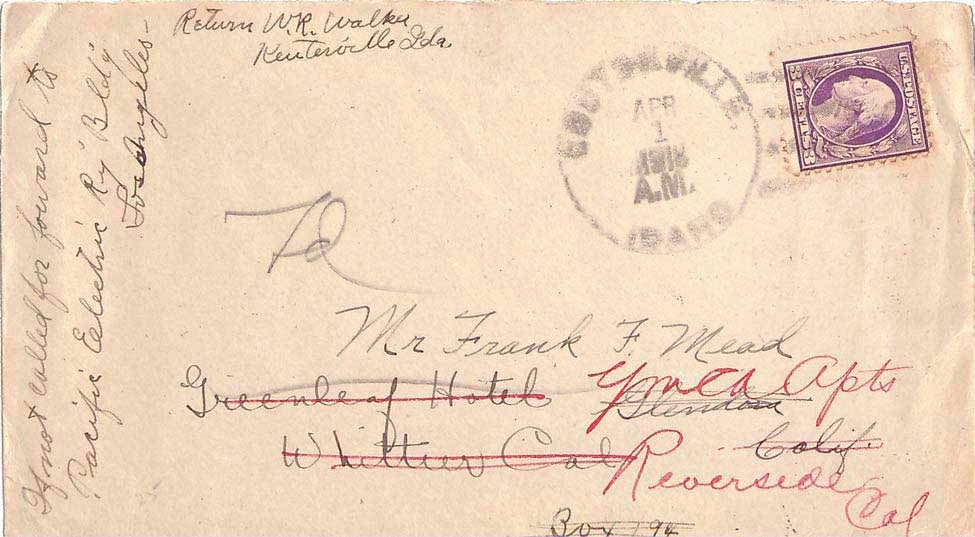 Return W.R. Walker
Keuterville Ida.
If not called for forward to
Pacific Eelectric Ry Bld'g
Los Angeles-
APR
1
1918
A.M.
IDAHO
U.S. POSTAGE
3 CENTS 3
Mr Frank F. Mead
Greenleaf Hotel
YMCA Apts
Glendora
Whittier Cal
Calif.
Riverside
Cal
Box 194